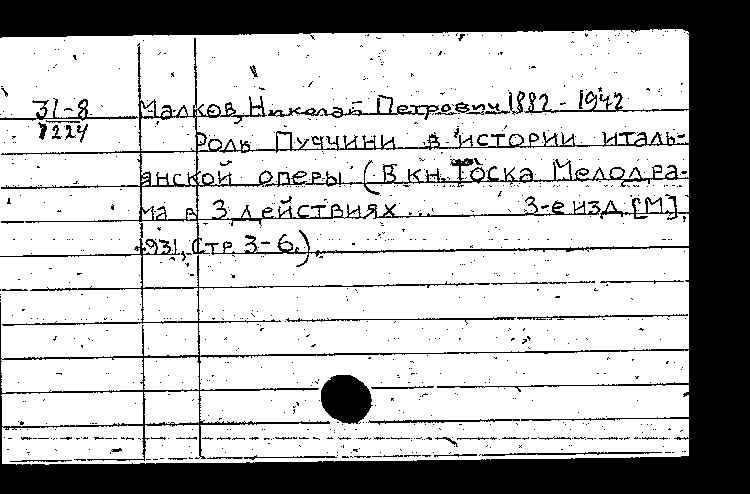 31-8 Малков, Николай Петрович 1882 - 1942
1224
Роль Пуччини в истории италь-
янской оперы (В кн. Тоска Мелодра-
ма в 3 действиях... 3-е изд. [М],
1931, Стр. 3-6.),